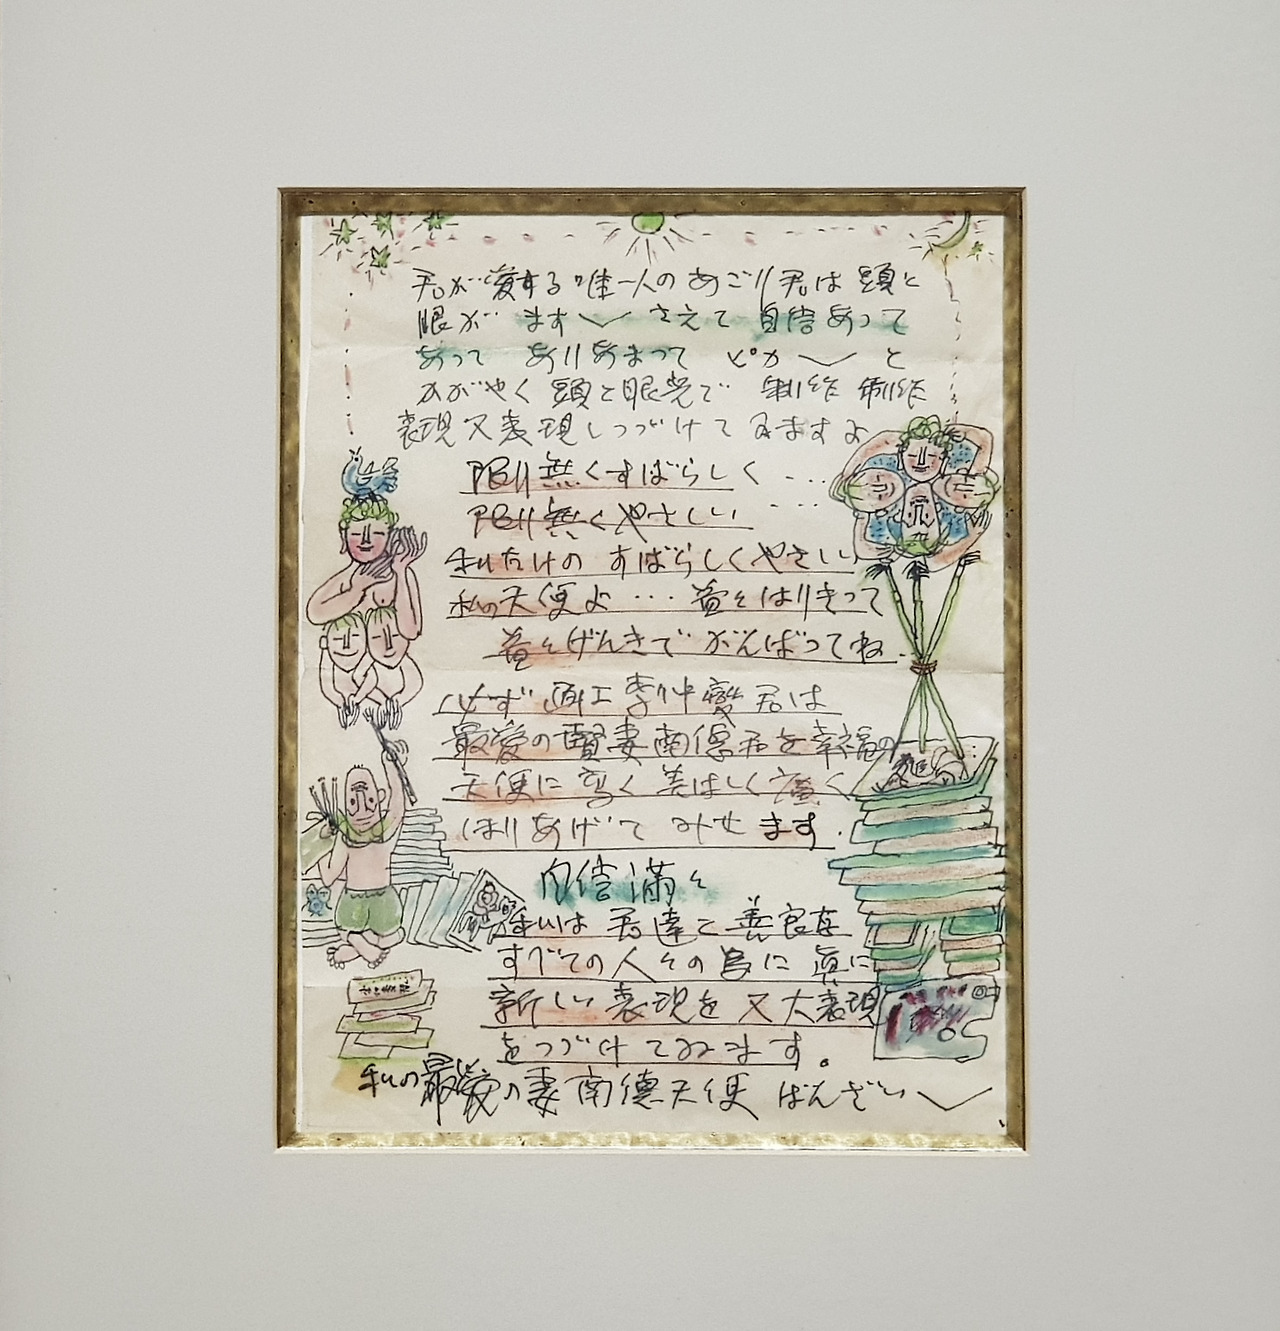 君が愛する唯一人のあごリ君は頭と
眼が ます〱 さえて 自信あって
あって ありあまって ピカ〱 と
かがやく 頭と眼光で 制作 制作
表現又表現しつづけてゐますよ
限り無くすばらしく・・・
限り無くやさしい・・・
私だけの すばらしくやさしい
私の天使よ・・・益々はりきって
益々げんきで がんばってね.
必ず 画工李仲燮君は
最愛の賢妻南徳君を幸福の
天使に高く美はしく廣く
ほりあげて みせます.
自信満々
私は 君達と善良な
すべての人々の為に 真に
新しい表現を 又大表現
をつづけてゐます。
私の最愛の妻南徳天使 ばんざい〱